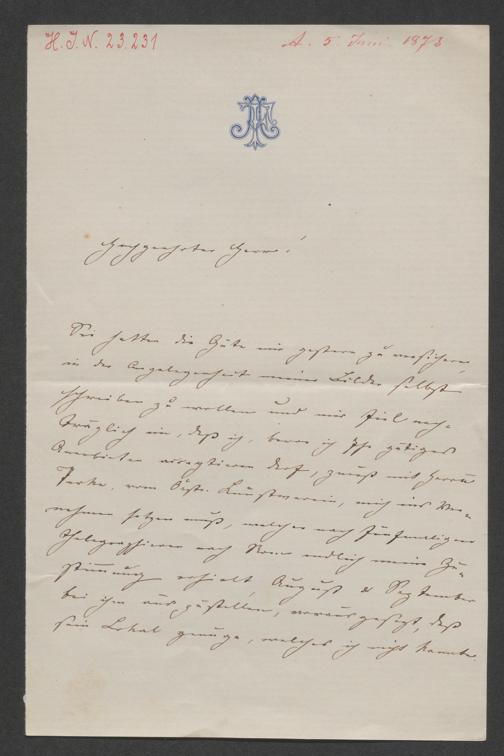 H.I.N. 23.231
A. 5. Juni 1873
Hochgeehrter Herr!
Sie hatten die Güte mir gestern zu versichern
in der Angelegenheit meiner Bilder selbst
schreiben zu wollen und mir fiel nach-
träglich ein, daß ich, bevor ich Ihr gütiges
Anerbieten acceptieren darf, zuerst mit Herrn
vom Östr. Kunstverein, mich ins Ver-
nehmen setzen muß, welcher nach fünfmaligem
Thelegraphieren nach Rom endlich meine Zu-
stimmung erhielt, August & September
bei ihm auszustellen, vorausgesetzt, daß
sein Lokal genüge, welches ich nicht kannte